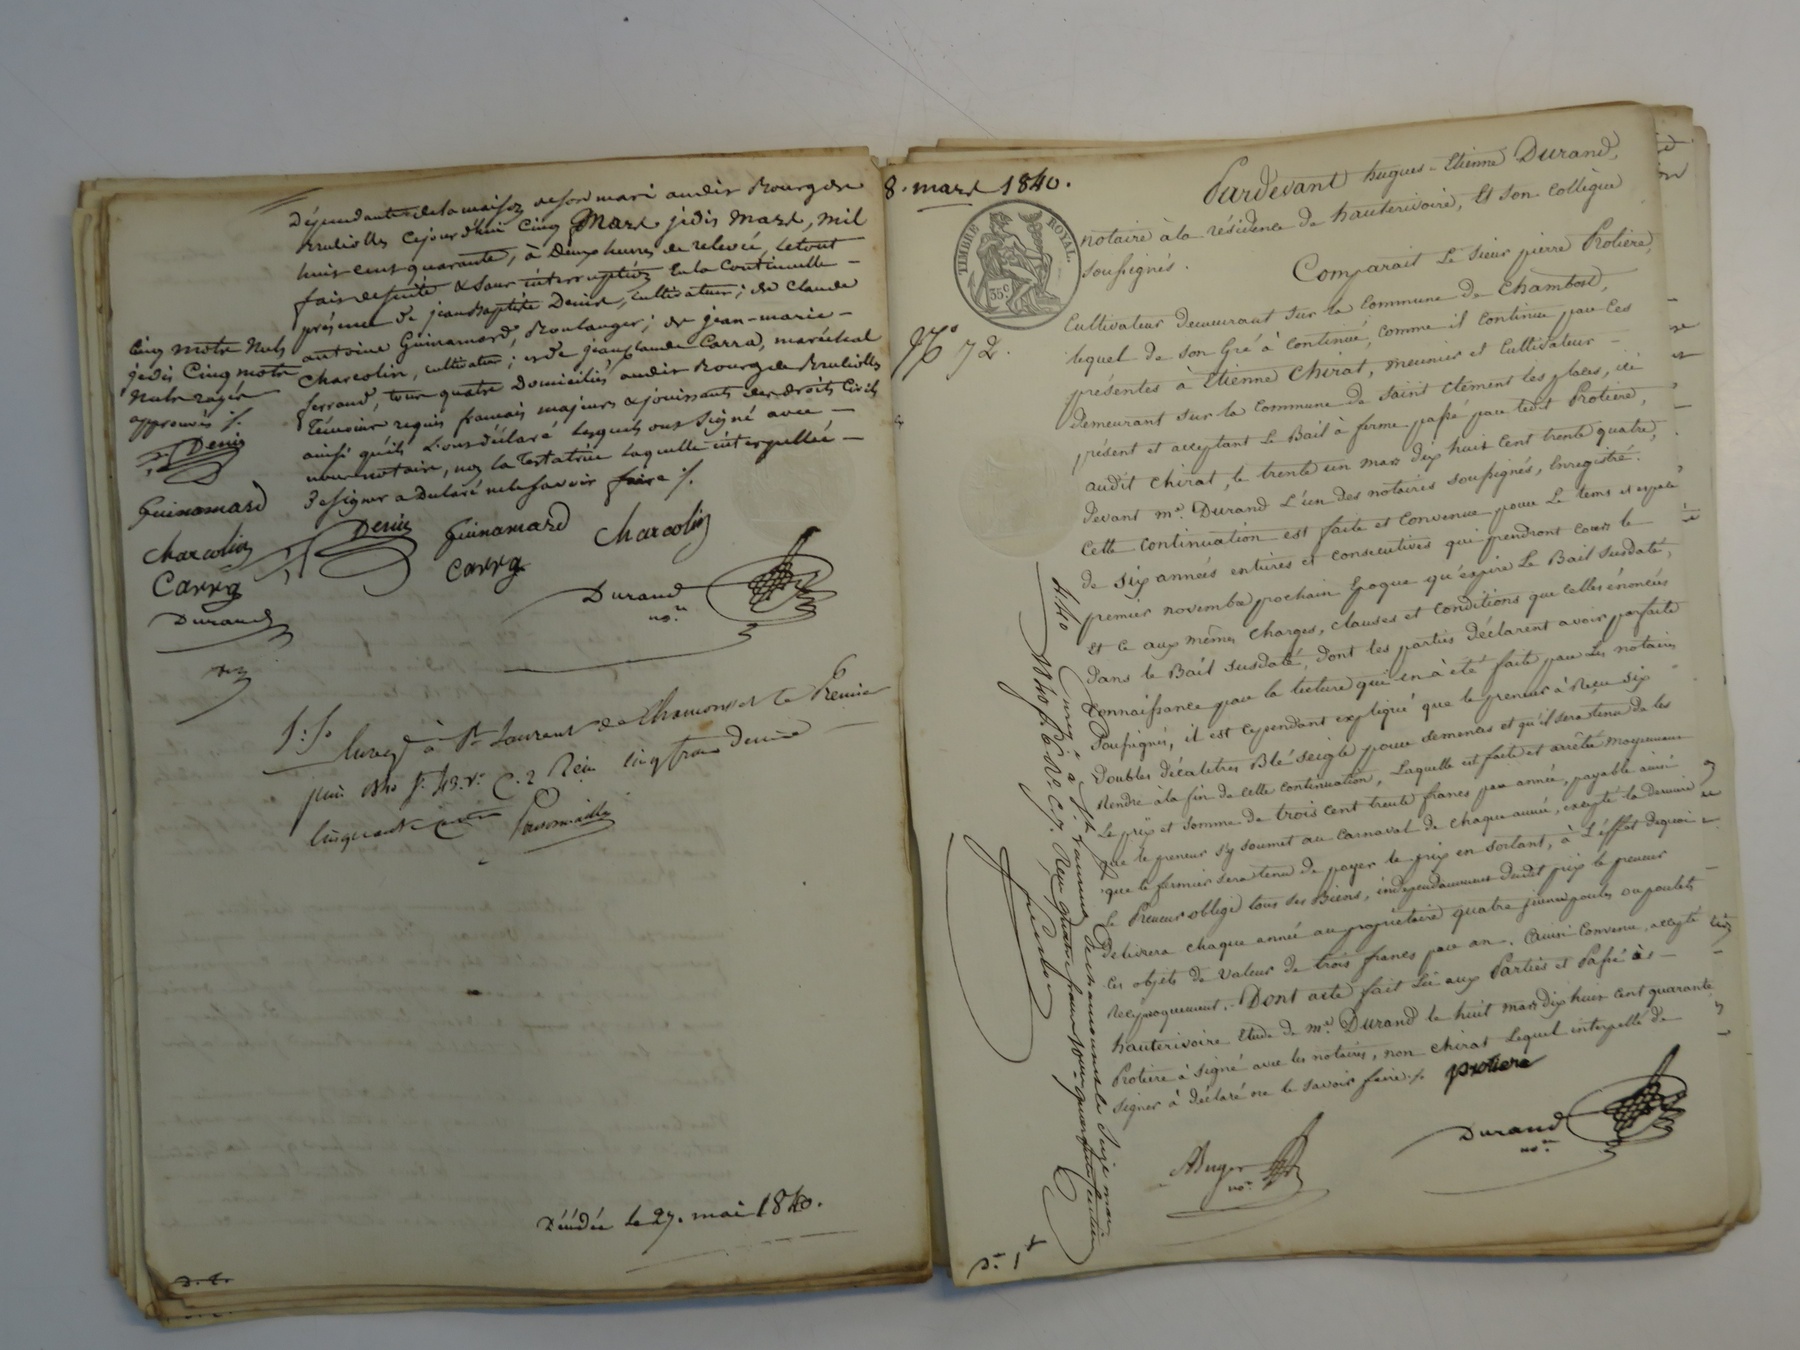 Dépendante de la maison de son mari audit Bourg de
Brulioles cejourd'hui Cinq Mars jedis Mars, mil
huit cent quarante, à Deux heures de relevée, le tout
fait de suite & sans interruption En la Continuelle
présence de jean Baptiste Denis, cultivateur; de Claude
antoine Guinamard, Boulanger; de jean-marie
Charcolin, cultivateur; et de jean Claude Carra, maréchal
ferrand, tous quatre Domiciliés audit Bourg de Brulioles
Témoins requis français majeurs & jouissants des droits Civils
ainsi qu'ils L'ont déclaré Lesquels ont Signé avec
nous notaire, non la Testatrice laquelle interpellée
De signer a Déclaré ne le savoir faire ./.
Cinq mots Nuls
jedis Cinq mots
Nuls rayés
approuvés ./.
Denis
Guinamard
Charcolin
Carra
Durand
Denis Guinamard Charcolin
Carra
Durand
no.re
Enregé à St Laurent de Chamousset le
juin 1840 f. 43 v. C. 2 Reçu cinq francs decime
cinquante centimes
Décédée le 27. mai 1840.
8. mars 1840.
TIMBRE ROYAL.
35 c
No 72.
Pardevant hugues-Etienne Durand,
notaire à la résidence de hauterivoire, Et son Collègue
soussignés.
Comparait Le Sieur pierre Protiere,
Cultivateur demeurant sur la Commune de Chambost,
lequel de son Gré à Continué, comme il Continue par Ces
présentes à Etienne Chirat, meunier et Cultivateur
demeurant sur la Commune de Saint Clément les places, ici
présent et acceptant Le Bail à ferme passé par ledit Protiere,
audit Chirat, le trente un mars dix huit Cent trente quatre,
devant me. Durand L'un des notaires soussignés, Enregistré.
Cette Continuation est faite et Convenue pour Le tems et espace
de six années entières et consecutives qui prendront cours le
premier novembre prochain Epoque qu'expire Le Bail susdaté,
Et Ce aux mêmes Charges, Clauses et Conditions que Celles énoncées
dans le Bail susdaté, dont les parties déclarent avoir parfaite
Connaissance par la lecture qui en à été faite par Les notaires
Soussignés, il est cependant expliqué que le preneur à Reçu six
Doubles décalitres Blé Seigle pour semences et qu'il sera tenu de les
Rendre à la fin de cette Continuation, Laquelle est faite et arrêtée moyennant
Le prix et somme de trois cent trente francs par année, payable ainsi
que le preneur s'y soumet au Carnaval de chaque année, excepté la dernière
que le fermier sera tenu de payer le prix en sortant, à L'effet de quoi
Le Preneur oblige tous ses Biens, indépendamment dudit prix le preneur
délivrera chaque année au propriétaire quatre jeunes poules ou poulets
Ces objets de valeur de trois francs par an. Ainsi Convenu, accepté
Réciproquement. Dont acte fait Lu aux Parties et Passé à
hauterivoire Etude de me. Durand le huit mars dix huit Cent quarante
Protiere à signé avec les notaires, non Chirat Lequel interpellé de
Signer à déclaré ne le savoir faire ./. protiere
Durand
no.re
Enregé à St. Laurent de chamousset le